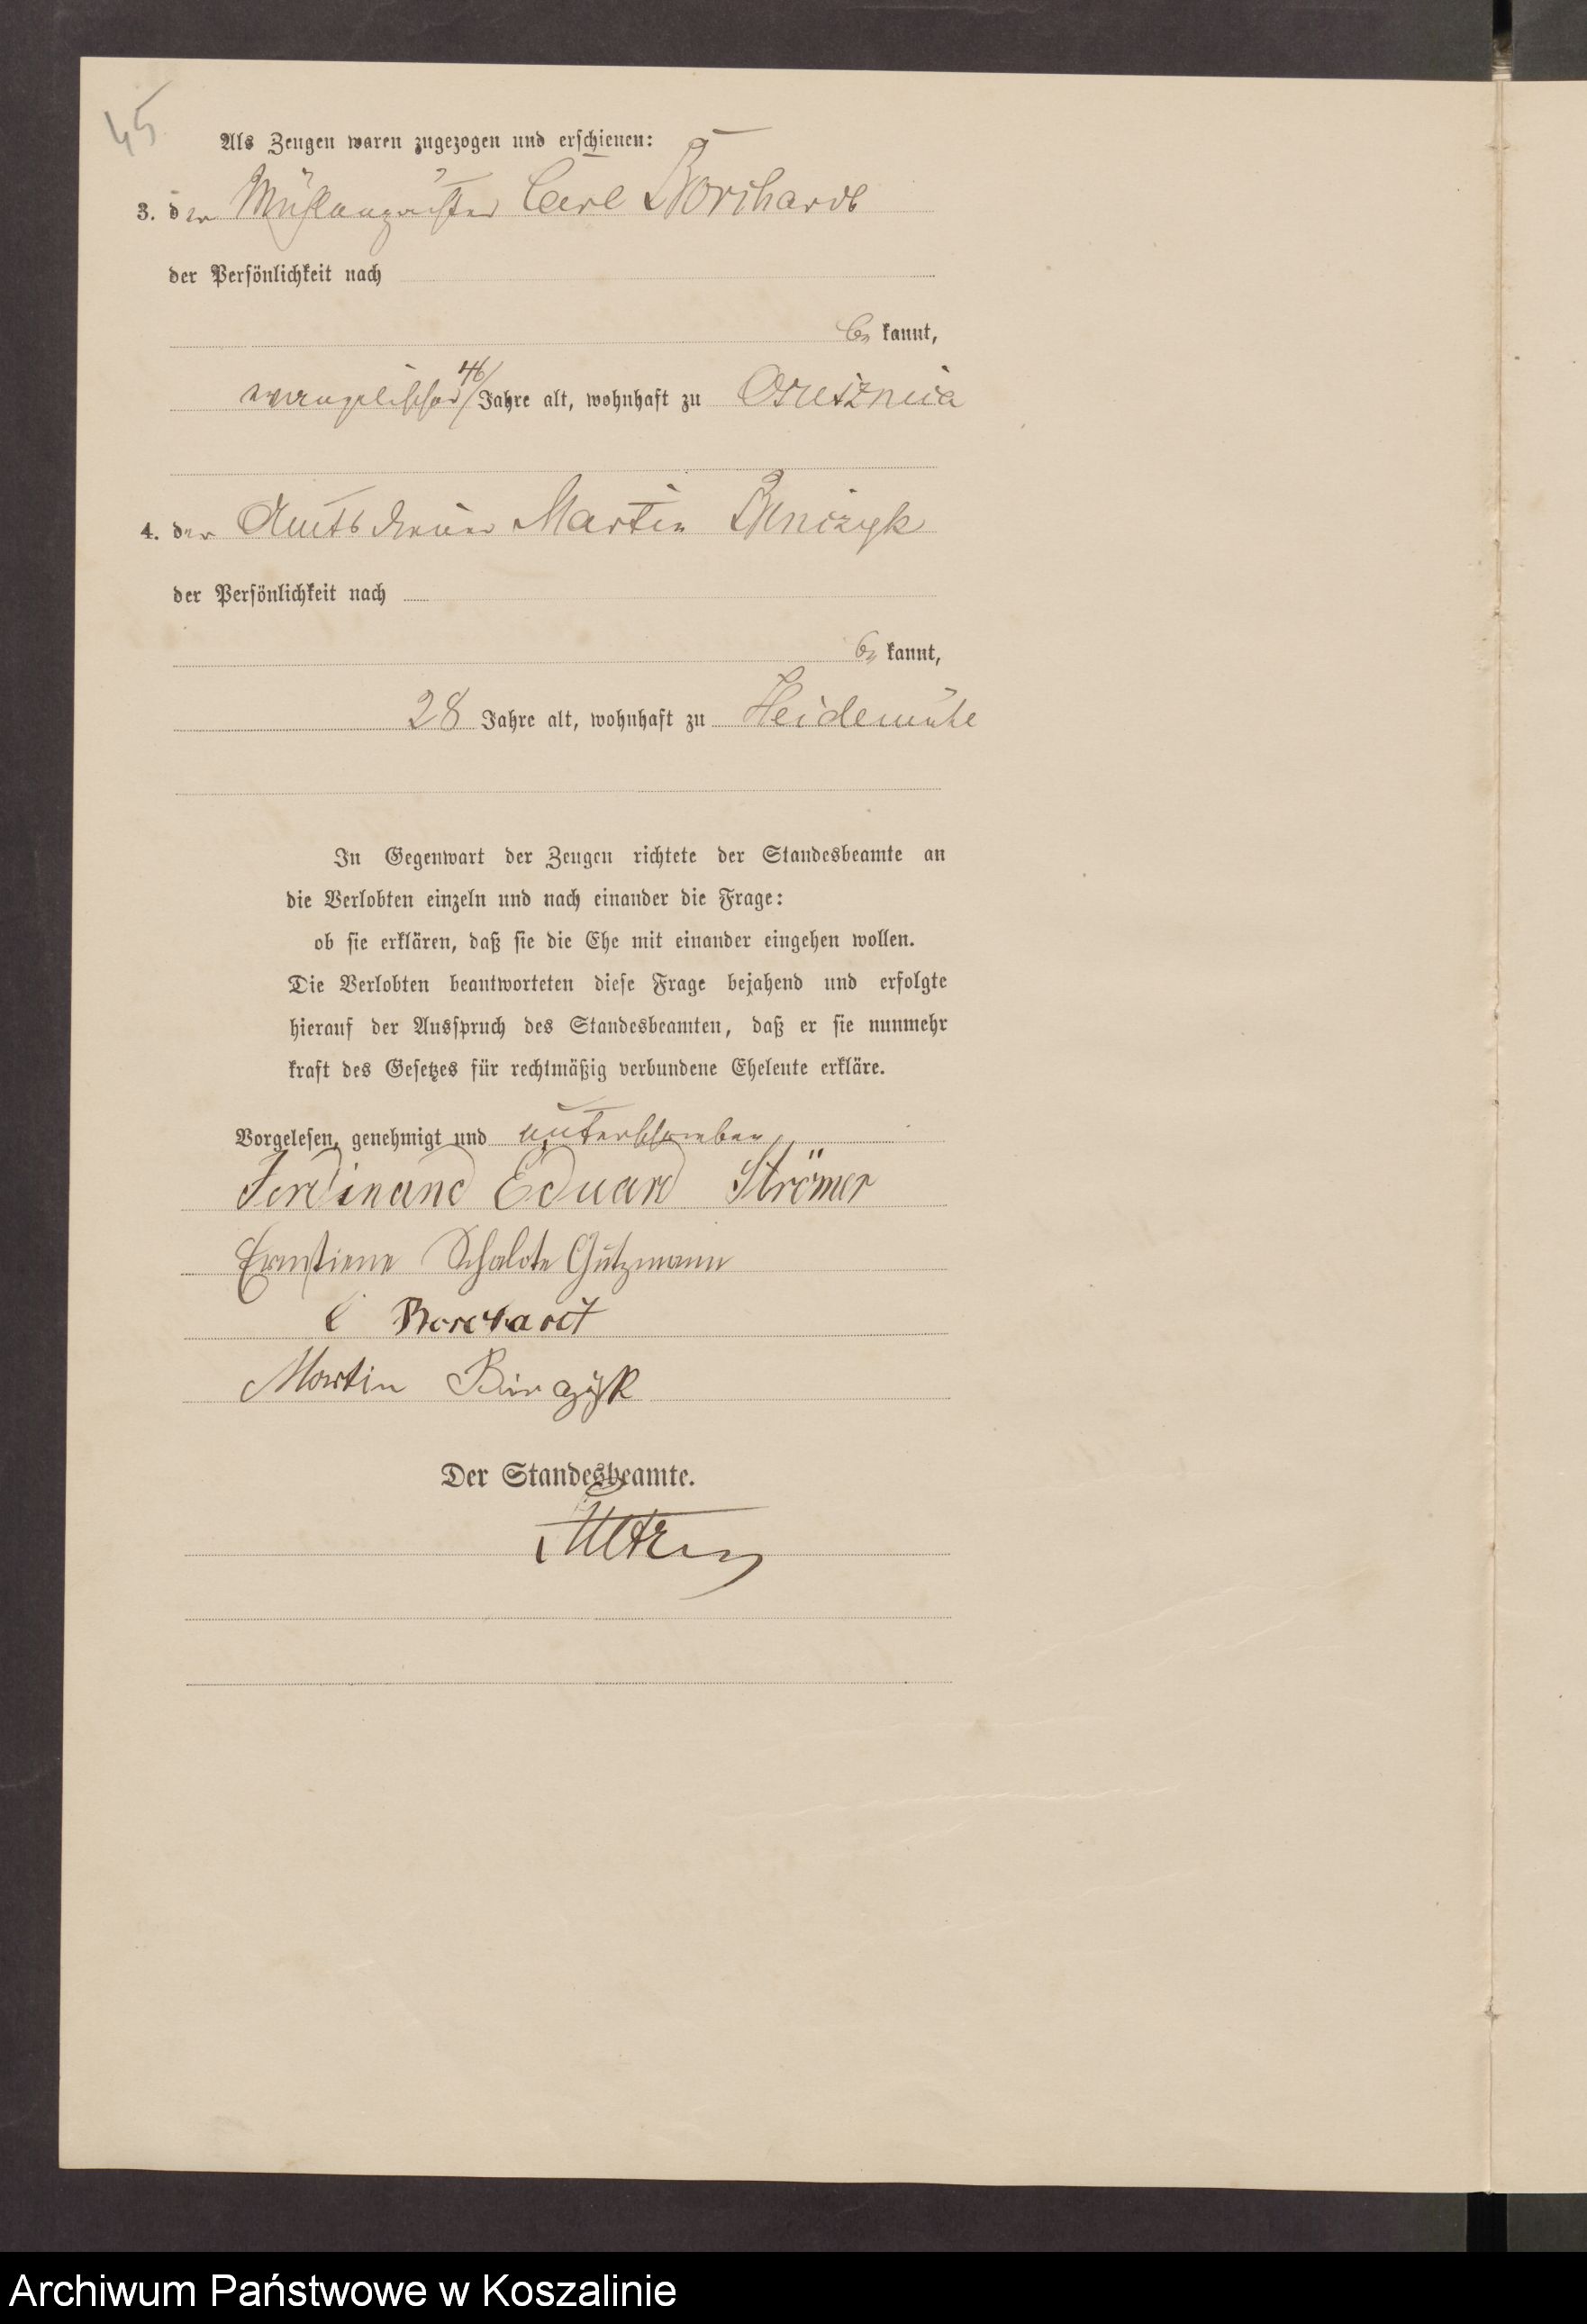 45
Als Zeugen waren zugezogen und erschienen:
3. der Carl Borchardt
der Persönlichkeit nach
be kannt,
evangelischer 46/ Jahre alt, wohnhaft zu Osusznica
4. der Amtsdiener Martin
der Persönlichkeit nach
be kannt,
28 Jahre alt, wohnhaft zu Heidemühle
In Gegenwart der Zeugen richtete der Standesbeamte an
die Verlobten einzeln und nach einander die Frage:
ob sie erklären, daß sie die Ehe mit einander eingehen wollen.
Die Verlobten beantworteten diese Frage bejahend und erfolgte
hierauf der Ausspruch des Standesbeamten, daß er sie nunmehr
kraft des Gesetzes für rechtmäßig verbundene Eheleute erkläre.
Vorgelesen, genehmigt und unterschrieben
Ferdinand Eduard Strömer
Ernstiene Schalote Gutzmann
C Borchardt
Martin
Der Standesbeamte.
Archiwum Państwowe w Koszalinie